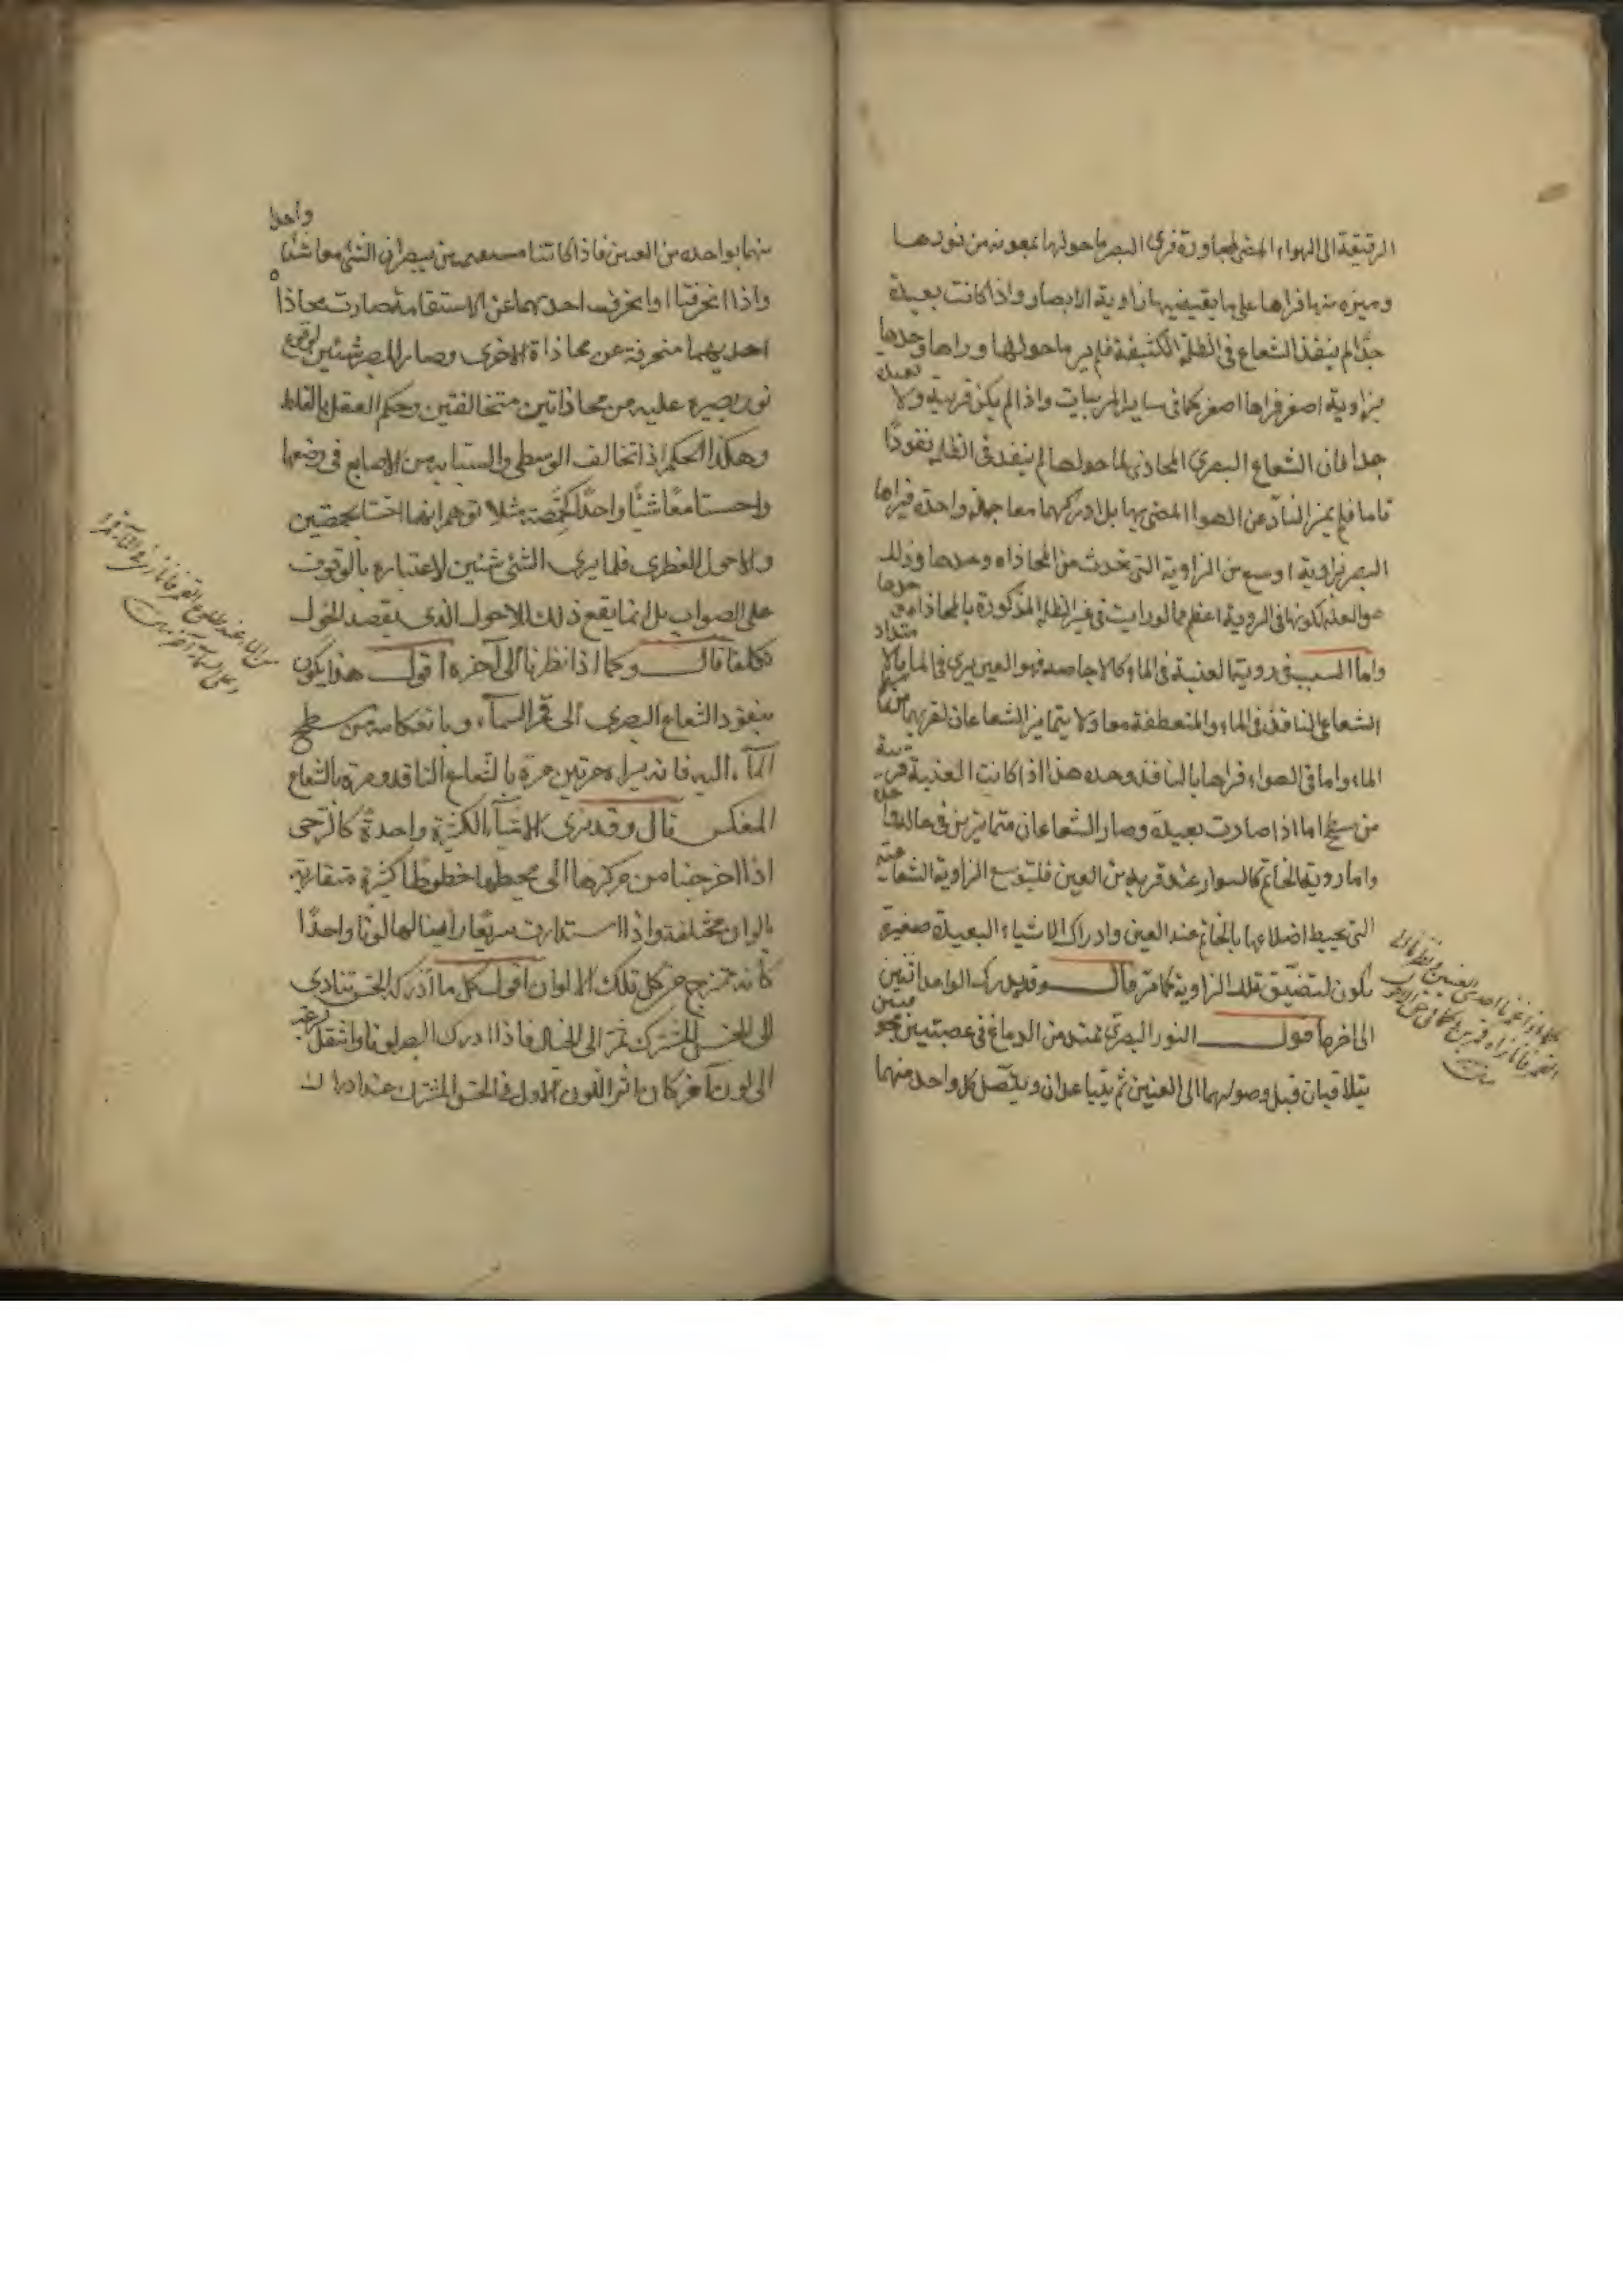 الرقيقة الى الهواء المضئ المجاورة فرى البصر ما حولها بمعونة من نورها
وميزه منها فراها على ما يقتضيها زاوية الابصار واذا كانت بعيدة
جدًّا لم ينفذ الشعاع فى الظلمة الكثيفة فلم ير ما حولها وراها وحدها
بزاوية اصغر فراها اصغر كما فى ساير المرييات واذا لم يكن قريبة ولا بعيدة
جدا فان الشعاع البصرى المحاذى لما حولها لم ينفد فى الظلمة نفوذًا
تاما فلم يميز النار عن الهوا المضئ بها بل ادركهما معا جملة واحدة فيراها
البصر بزاوية اوسع من الزاوية التى تحدث من المحاذاه وحدها وذلك
هو العله لكونها فى الروية اعظم مما لو رايت فى غير الظلمة المذكورة بالمحاذاه وحدها
واما السبب فى روية العنبة فى الماء كالاجاصه فهو العين يرى فى الما بالامتداد
الشعاعى النافذ فى الماء والمنعطفة معا ولا يتمايز الشعاعان لقربهما من سطح
الماء واما فى الهواء فراها بالنافذ وحده هذا اذا كانت العنبة قريبة
من سطح اما اذا صارت بعيدة وصار الشعاعان متمايزين فى حالة
واما روية الخاتم كالسوار عند قربه من العين فلتوسع الزاوية الشعاعية
التى يحيط اضلاعها بالخاتم عند العين وادراك الاشياء البعيدة صغيرة
يكون لتضيّق تلك الزاوية كما مر قال وقد يدرك الواحد اثنين
الى اخره اقول النور البصرى يمتد من الدماغ فى عصبتين مجوفتين
يتلاقيان قبل وصولهما الى العينين ثم يتباعدان ويتصل كل واحد منهما
كما اذا غمزنا احدى العينين ونظرنا الى
القمر فانا نراه قمرين وكما فى حق الاحول
منها بواحده من العين فاذا كانتا مستقيمتين يبصران الشئ معا شئا واحدا
واذا انحرفتا او انحرف احديهما عن الاستقامة صارت محاذاه
احديهما منحرفة عن محاذاة الاخرى وصار المبصر شيئين لوقوع
نور بصره عليه من محاذاتين متخالفتين وحكم العقل بالغلط
وهكذا الحكم اذا تخالف الوسطى والسبابة من الاصابع فى وضعها
واحستا معًا شئًا واحدًا كحمّصة مثلا توهم انها احستا بحمصتين
والاحول الفطرى قلما يرى الشئ شيئين لاعتباره بالوقوف
على الصواب بل انما يقع ذلك للاحول الذى يقصد الحول
تكلفا قال وكما اذا نظرنا الى آخره اقول هذا يكون
بنفوذ الشعاع البصرى الى قمر السمآء وبانعكاسه من سطح
المآء اليه فانه يراه مرتين مرة بالشعاع النافذ ومرة بالشعاع
المنعكس قال وقد يرى الاشيآء الكثيرة واحدةً كالرحى
اذا اخرجنا من مركزها الى محيطها خطوطًا كثيرة متقاربة
بالوان مختلفة واذا استدارت سريعًا راينا لها لونًا واحدًا
كانه ممتزج من كل تلك الالوان اقول كل ما ادركه الحس تتادى
الى الحس المشترك ثم الى الخيال فاذا ادرك البصر لونا وانتقل بسرعة
الى لون آخر كان اثر اللون الاول فى الحس المشترك عند ادراك
الماء عند طلوع القمر فانا نرى فى المآء قمرا
وعلى السمآء آخر